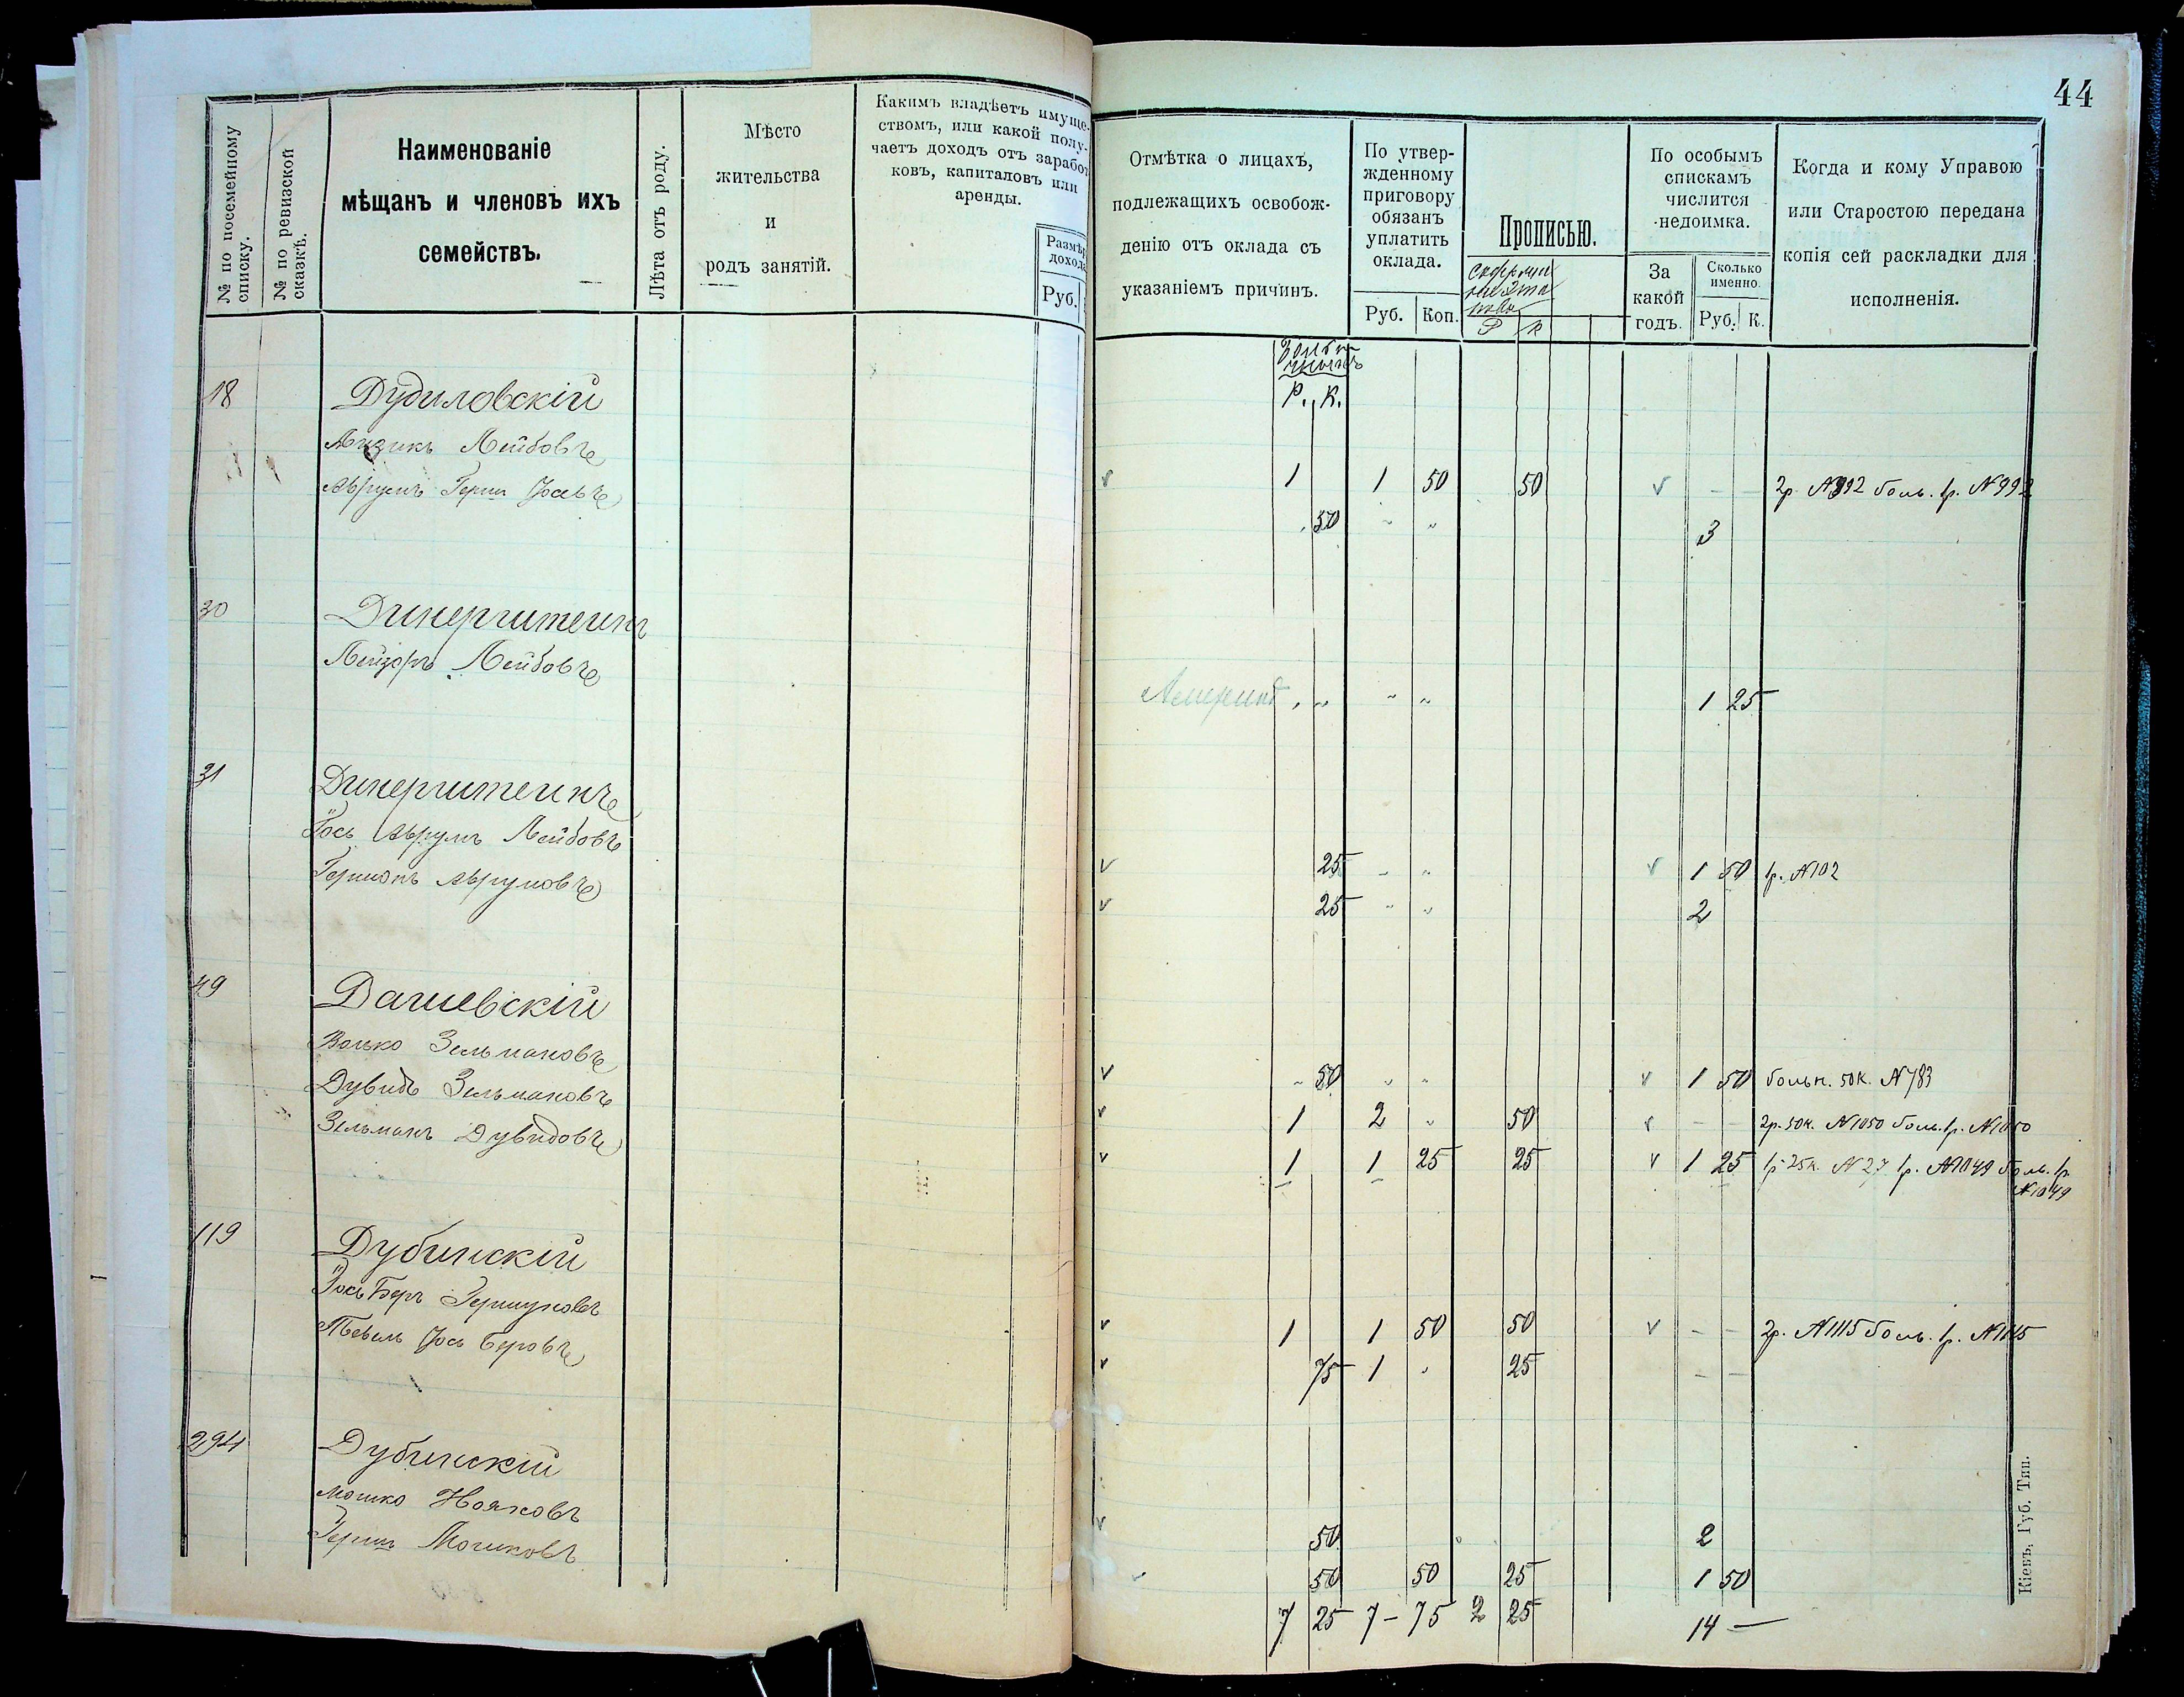 44
№ по посемейному списку.
№ по ревизской сказкѣ.
Наименованіе
мѣщанъ и членовъ ихъ
семействъ.
Лѣта отъ роду.
Мѣсто
жительства
и
родъ занятій.
Какимъ владѣетъ имуще-
ствомъ, или какой полу-
чаетъ доходъ отъ заработ
ковъ, капиталовъ или
аренды.
Размѣр
дохода
Руб.
Отмѣтка о лицахъ,
подлежащихъ освобож-
денію отъ оклада съ
указаніемъ причинъ.
По утвер-
жденному
приговору
обязанъ
уплатить
оклада.
Руб. Коп.
Прописью.
Р К
По особымъ
спискамъ
числится
недоимка.
За
какой
годъ.
Сколько
именно.
Руб. К.
Когда и кому Управою
или Старостою передана
копія сей раскладки для
исполненія.
Р. К.
18 Дудиловскій
Айзикъ Лейбовъ
1 1 50 50 - - 2р. №992 боль. 1р. №992
Аврумъ Герш Іосевъ
50 " " 3
30 Динерштейнъ
Лейзоръ Лейбовъ
" " " 1 25
31 Динерштейнъ
Іось Аврумъ Лейбовъ
25 " " 1 50 1р. №102
Гершонъ Аврумовъ
25 " " 2
49 Дашевскій
Волько Зельмановъ
" 50 " " 1 50 больн. 50к. №783
Дувидъ Зельмановъ
1 2 " 50 - - 2р. 50к. №1050 боль. 1р. №1050
Зельманъ Дувидовъ
1 1 25 25 1 25 1р 25к. №27 1р. №1049 боль. 1р
№1049
119 Дубинскій
Іось Беръ Гершуновъ
1 1 50 50 - - 2р. №1115 боль. 1р. №1115
Тевель Іось Беровъ
75 1 " 25 - -
294 Дубинскій
Мошко Нояховъ
50 2
Гершъ Мошковъ
50 50 25 1 50
7 25 7 - 75 2 25 14 —
Кіевъ, Губ. Тип.